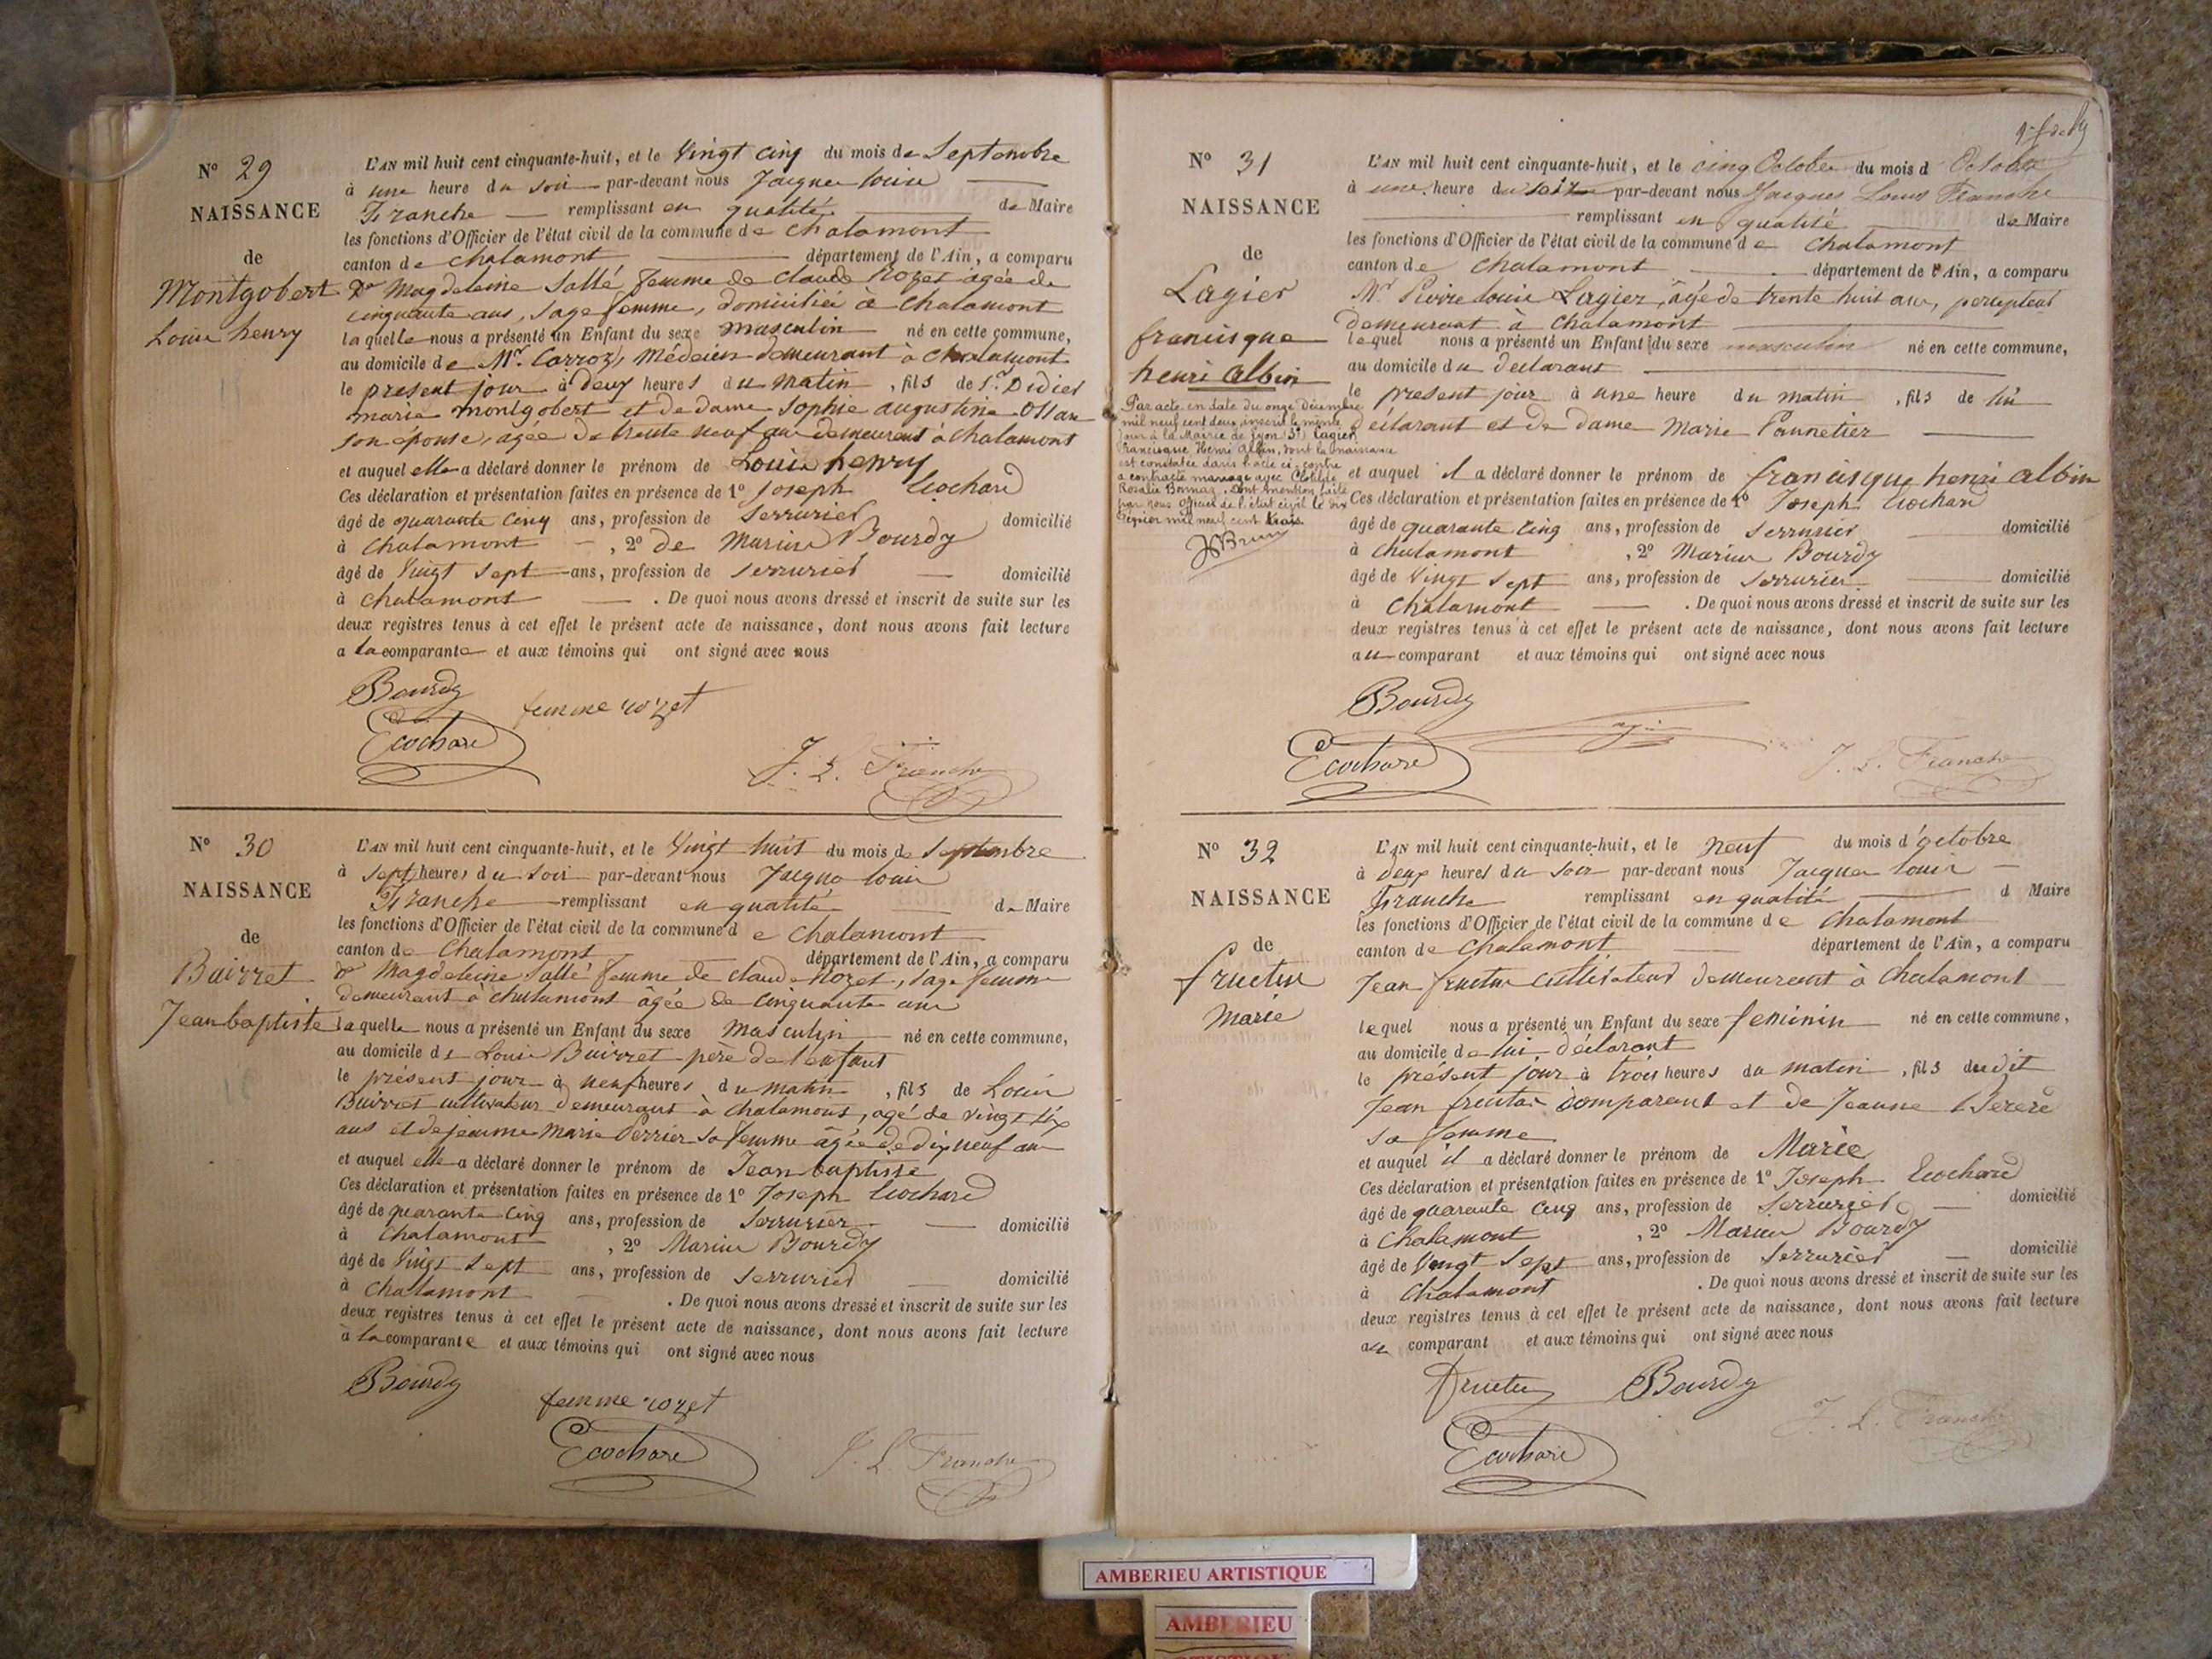 N° 29
NAISSANCE
de
Montgobert
Louis henry
L'AN mil huit cent cinquante-huit, et le Vingt cinq du mois de Septembre
à une heure du soir par-devant nous Jacques louis
Franche remplissant en qualité de Maire
les fonctions d'Officier de l'état civil de la commune de Chalamont
canton de Chalamont département de l'Ain, a comparu
De Magdeleine Sallé femme de Claude Rozet agée de
cinquante ans, sage femme, domiciliée à Chalamont
laquelle nous a présenté un Enfant du sexe masculin né en cette commune,
au domicile de Mr. Carroz, Médecin demeurant à Chalamont
le présent jour à deux heures du matin, fils de Sr. Didier
marie montgobert et de dame Sophie augustine
son épouse, agée de trente neuf ans demeurant à Chalamont
et auquel elle a déclaré donner le prénom de Louis henry
Ces déclaration et présentation faites en présence de 1° Joseph Ecochard
âgé de quarante cinq ans, profession de Serrurier domicilié
à Chalamont, 2° de Marius Bourdy
âgé de Vingt Sept ans, profession de Serrurier domicilié
à Chalamont. De quoi nous avons dressé et inscrit de suite sur les
deux registres tenus à cet effet le présent acte de naissance, dont nous avons fait lecture
a la comparante et aux témoins qui ont signé avec nous
Bourdy
femme rozet
Ecochard
J. L. Franche
N° 30
NAISSANCE
de
Buirret
Jean baptiste
L'AN mil huit cent cinquante-huit, et le Vingt huit du mois de Septembre
à Sept heures du soir par-devant nous Jacques louis
Franche remplissant en qualité de Maire
les fonctions d'Officier de l'état civil de la commune de Chalamont
canton de Chalamont département de l'Ain, a comparu
De Magdeleine Sallé femme de Claude Rozet, sage femme
demeurant à chalamont âgée de cinquante ans
laquelle nous a présenté un Enfant du sexe Masculin né en cette commune,
au domicile de Louis Buirret père de l'enfant
le présent jour à neuf heures du matin, fils de Louis
Buirret cultivateur demeurant à chalamont, agé de vingt six
ans et de jeanne Marie Perrier sa femme âgée de dix neuf ans
et auquel elle a déclaré donner le prénom de Jean baptiste
Ces déclaration et présentation faites en présence de 1° Joseph Ecochard
âgé de quarante cinq ans, profession de Serrurier domicilié
à Chalamont, 2° Marius Bourdy
âgé de Vingt Sept ans, profession de Serrurier domicilié
à Chalamont. De quoi nous avons dressé et inscrit de suite sur les
deux registres tenus à cet effet le présent acte de naissance, dont nous avons fait lecture
à la comparante et aux témoins qui ont signé avec nous
Bourdy
femme rozet
Ecochard
J. L. Franche
N° 31
NAISSANCE
de
Lagier
francisque
henri albin
Par acte en date du onze Décembre
mil neuf cent deux, inscrit le même
jour à la Mairie de Lyon (3e) Lagier
Francisque Henri Albin, dont la naissance
est constatée dans l'acte ci-contre
a contracté mariage avec Clotilde
Rosalie Bonnaz. Dont mention faite
par nous officier de l'état civil le dix
Février mil neuf cent trois.
L'AN mil huit cent cinquante-huit, et le cinq October du mois d Octobre
à une heure du soir par-devant nous Jacques Louis Franche
remplissant en qualité de Maire
les fonctions d'Officier de l'état civil de la commune de Chalamont
canton de Chalamont département de l'Ain, a comparu
Mr Pierre louis Lagier, âgé de trente huit ans, percepteur
demeurant à Chalamont
lequel nous a présenté un Enfant du sexe masculin né en cette commune,
au domicile du déclarant
le présent jour à une heure du matin, fils de lui
déclarant et de dame Marie Pannetier
et auquel il a déclaré donner le prénom de francisque henri albin
Ces déclaration et présentation faites en présence de 1° Joseph Ecochard
âgé de quarante cinq ans, profession de Serrurier domicilié
à Chalamont, 2° Marius Bourdy
âgé de Vingt Sept ans, profession de Serrurier domicilié
à Chalamont. De quoi nous avons dressé et inscrit de suite sur les
deux registres tenus à cet effet le présent acte de naissance, dont nous avons fait lecture
au comparant et aux témoins qui ont signé avec nous
Bourdy
Ecochard
J. L. Franche
N° 32
NAISSANCE
de
fructus
Marie
L'AN mil huit cent cinquante-huit, et le neuf du mois d'octobre
à deux heures du soir par-devant nous Jacques louis
Franche remplissant en qualité d Maire
les fonctions d'Officier de l'état civil de la commune de Chalamont
canton de Chalamont département de l'Ain, a comparu
Jean fructus cultivateur demeurant à Chalamont
lequel nous a présenté un Enfant du sexe feminin né en cette commune,
au domicile de lui déclarant
le présent jour à trois heures du matin, fils dudit
Jean fructus comparant et de Jeanne
sa femme
et auquel il a déclaré donner le prénom de Marie
Ces déclaration et présentation faites en présence de 1° Joseph Ecochard
âgé de quarante cinq ans, profession de Serrurier domicilié
à Chalamont, 2° Marius Bourdy
âgé de Vingt Sept ans, profession de Serrurier domicilié
à Chalamont. De quoi nous avons dressé et inscrit de suite sur les
deux registres tenus à cet effet le présent acte de naissance, dont nous avons fait lecture
au comparant et aux témoins qui ont signé avec nous
Fructus
Bourdy
Ecochard
J. L. Franche
AMBERIEU ARTISTIQUE
AMBERIEU
ARTISTIQUE